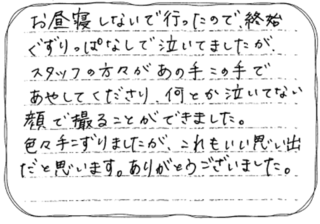 お昼寝しないで行ったので、終始
ぐずりっぱなしで泣いてましたが、
スタッフの方々があの手この手で
あやしてくださり、何とか泣いてない
顔で撮ることができました。
色々手こずりましたが、これもいい思い出
だと思います。ありがとうございました。